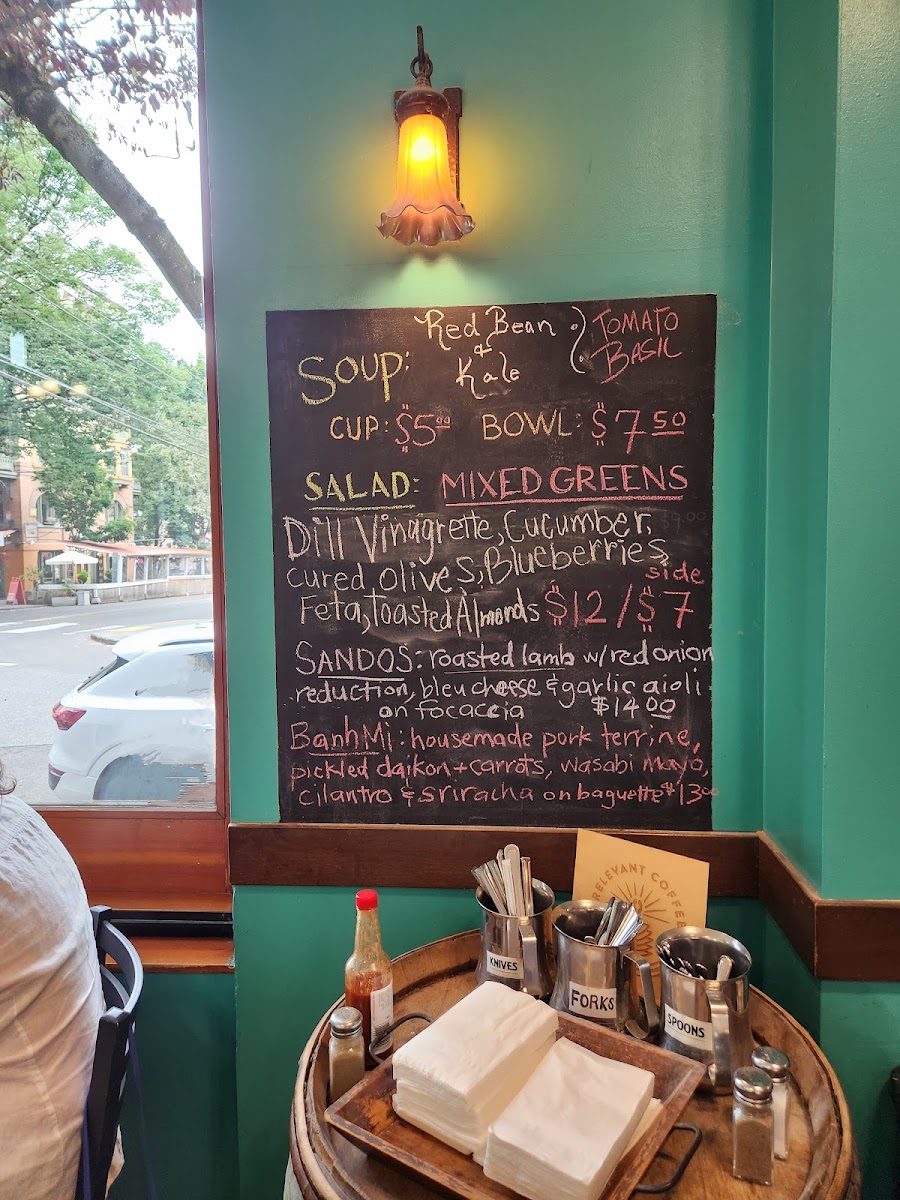 Red Bean
&
Kale
TOMATO
BASIL
SOUP:
CUP: $5.00 BOWL: $7.50
SALAD: MIXED GREENS
Dill Vinagrette, Cucumber,
cured olives, Blueberries,
side
Feta, Toasted Almonds $12/$7
SANDOS: roasted lamb w/ red onion
reduction, bleu cheese & garlic aioli
on focaccia $14.00
Banh Mi: housemade pork terrine,
pickled daikon + carrots, wasabi mayo,
cilantro & sriracha on baguette $13.00
RELEVANT COFFEE
KNIVES
FORKS
SPOONS